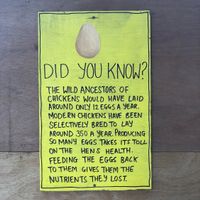 DID YOU KNOW?
THE WILD ANCESTORS OF
CHICKENS WOULD HAVE LAID
AROUND ONLY 12 EGGS A YEAR.
MODERN CHICKENS HAVE BEEN
SELECTIVELY BRED TO LAY
AROUND 350 A YEAR. PRODUCING
SO MANY EGGS TAKES ITS TOLL
ON THE HENS HEALTH.
FEEDING THE EGG BACK
TO THEM GIVES THEM THE
NUTRIENTS THEY LOST.